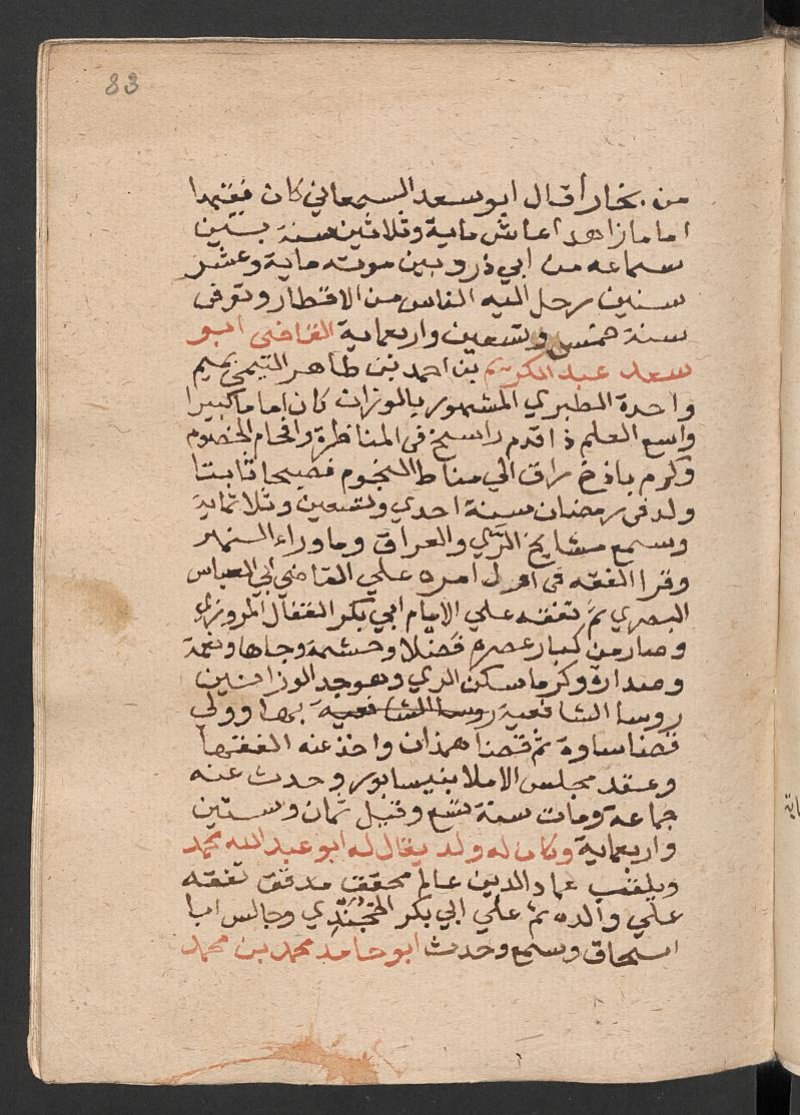 83
من بخارا قال ابو سعد السمعاني كان فقيها
اماما زاهدا عاش ماية وثلاثين سنة بين
سماعه من ابي ذر وبين موته ماية وعشر
سنين رحل اليه الناس من الاقطار وتوفى
سنة خمس وتسعين واربعماية القاضى ابو
سعد عبد الكريم بن احمد بن طاهر التيمي بميم
واحدة الطبري المشهور بالوزان كان اماما كبيرا
واسع العلم ذا قدم راسخ فى المناظرة وافحام الخصوم
وكرم باذخ راق الي مناط النجوم فصيحا ثابتا
ولد فى رمضان سنة احدي وتسعين وثلاثماية
وسمع مشايخ الري والعراق وما وراء النهر
وقرا الفقه فى اول امره علي القاضي ابي العباس
البصري ثم تفقه علي الامام ابي بكر القفال المروزي
وصار من كبار عصره فضلا وحشمة وجاها ونعمة
وصدارة وكرما سكن الري وهو جد الوزانين
روسا الشافعية روسا الشافعية بها وولي
قضا ساوة ثم قضا همذان واخذ عنه الفقها
وعقد مجلس الاملا بنيسابور وحدث عنه
جماعة ومات سنة تسع وقيل ثمان وستين
واربعماية وكان له ولد يقال له ابو عبد الله محمد
ويلقب عماد الدين عالم محقق مدقق تفقه
علي والده ثم علي ابي بكر الخجندي وجالس ابا
اسحاق وسمع وحدث ابو حامد محمد بن محمد